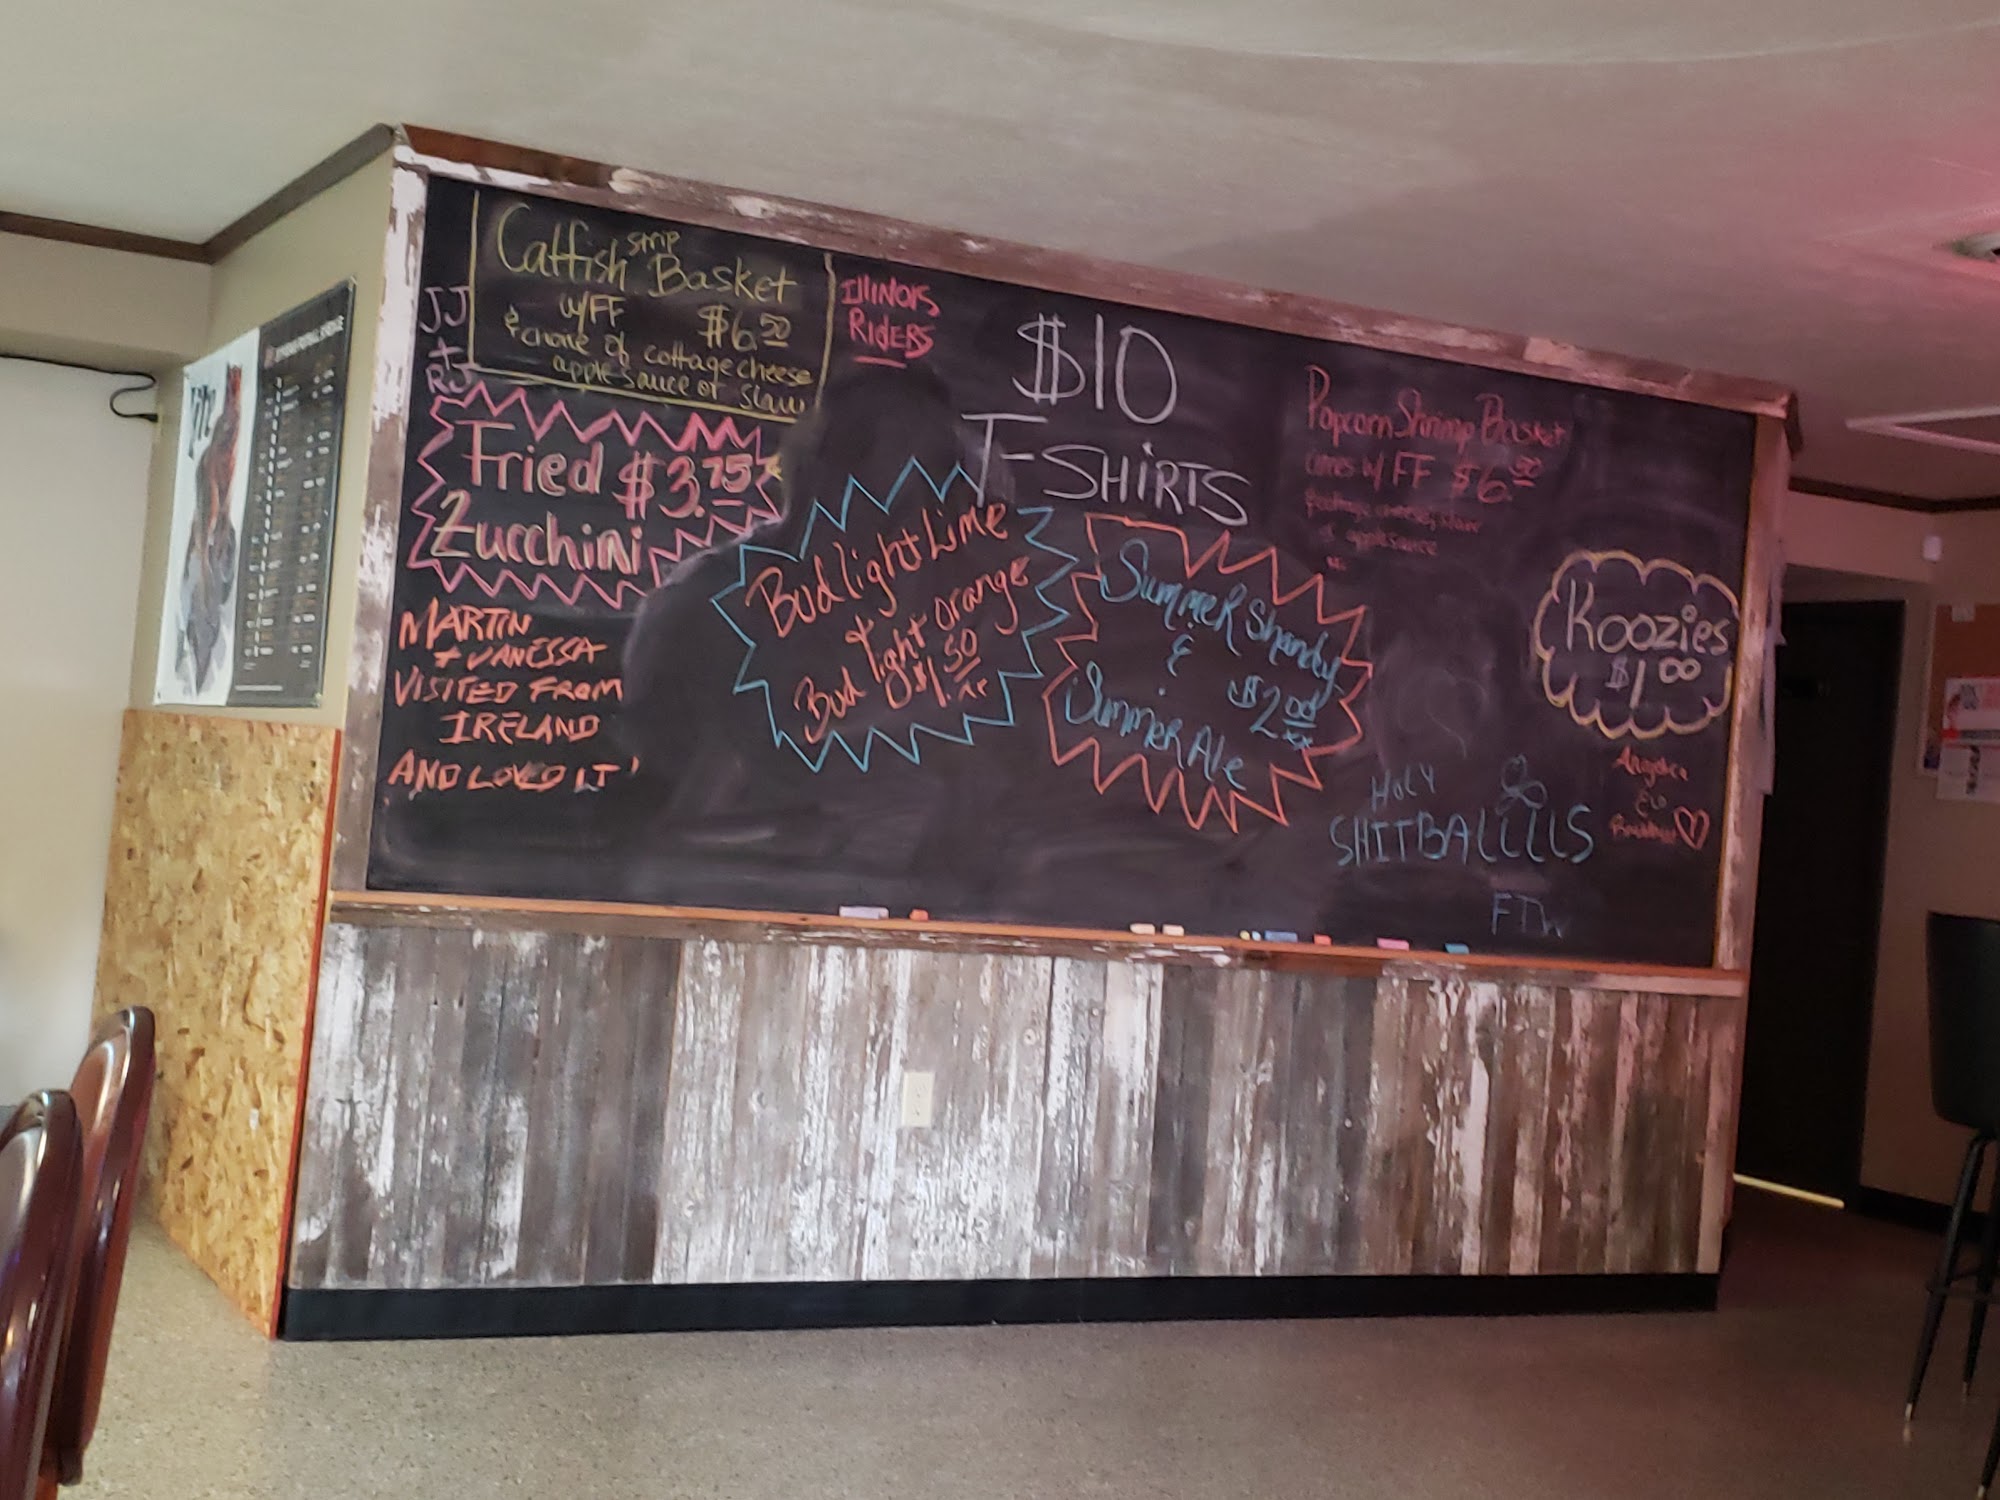 Catfish strip Basket
w/FF $6.50
& choice of cottage cheese
apple sauce or slaw
JJ
+
RJ
Illinois
Riders
$10
T-SHIRTS
Popcorn Shrimp Basket
comes w/ FF $6.50
cottage cheese, slaw
applesauce
Fried $3.75
Zucchini
Bud light Lime
&
Bud light orange
$1.50
Summer Shandy
&
$2.00
Summer Ale
Koozies
$1.00
MARTIN
+ VANESSA
VISITED FROM
IRELAND
AND LOVED IT!
HOLY
SHITBALLLLLS
FTW
Angelica
&
Lite